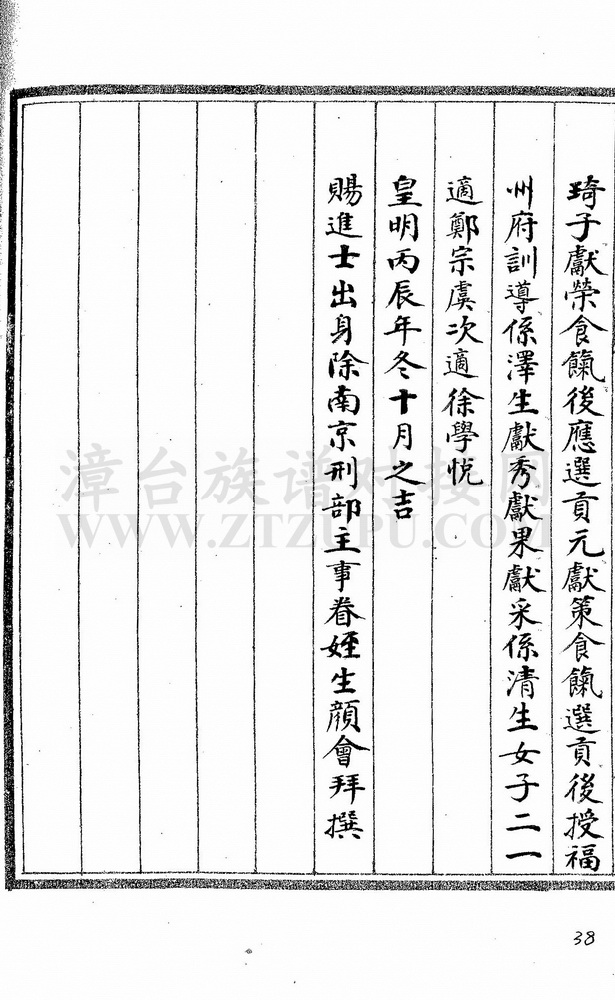 琦子獻榮食餼後應選貢元獻策食餼選貢後授福
州府訓導係澤生獻秀獻果獻采係清生女子二一
適鄭宗虞次適徐學悅
皇明丙辰年冬十月之吉
賜進士出身除南京刑部主事眷姪生顏會拜撰
漳台族谱对接网
WWW.ZTZUPU.COM
38